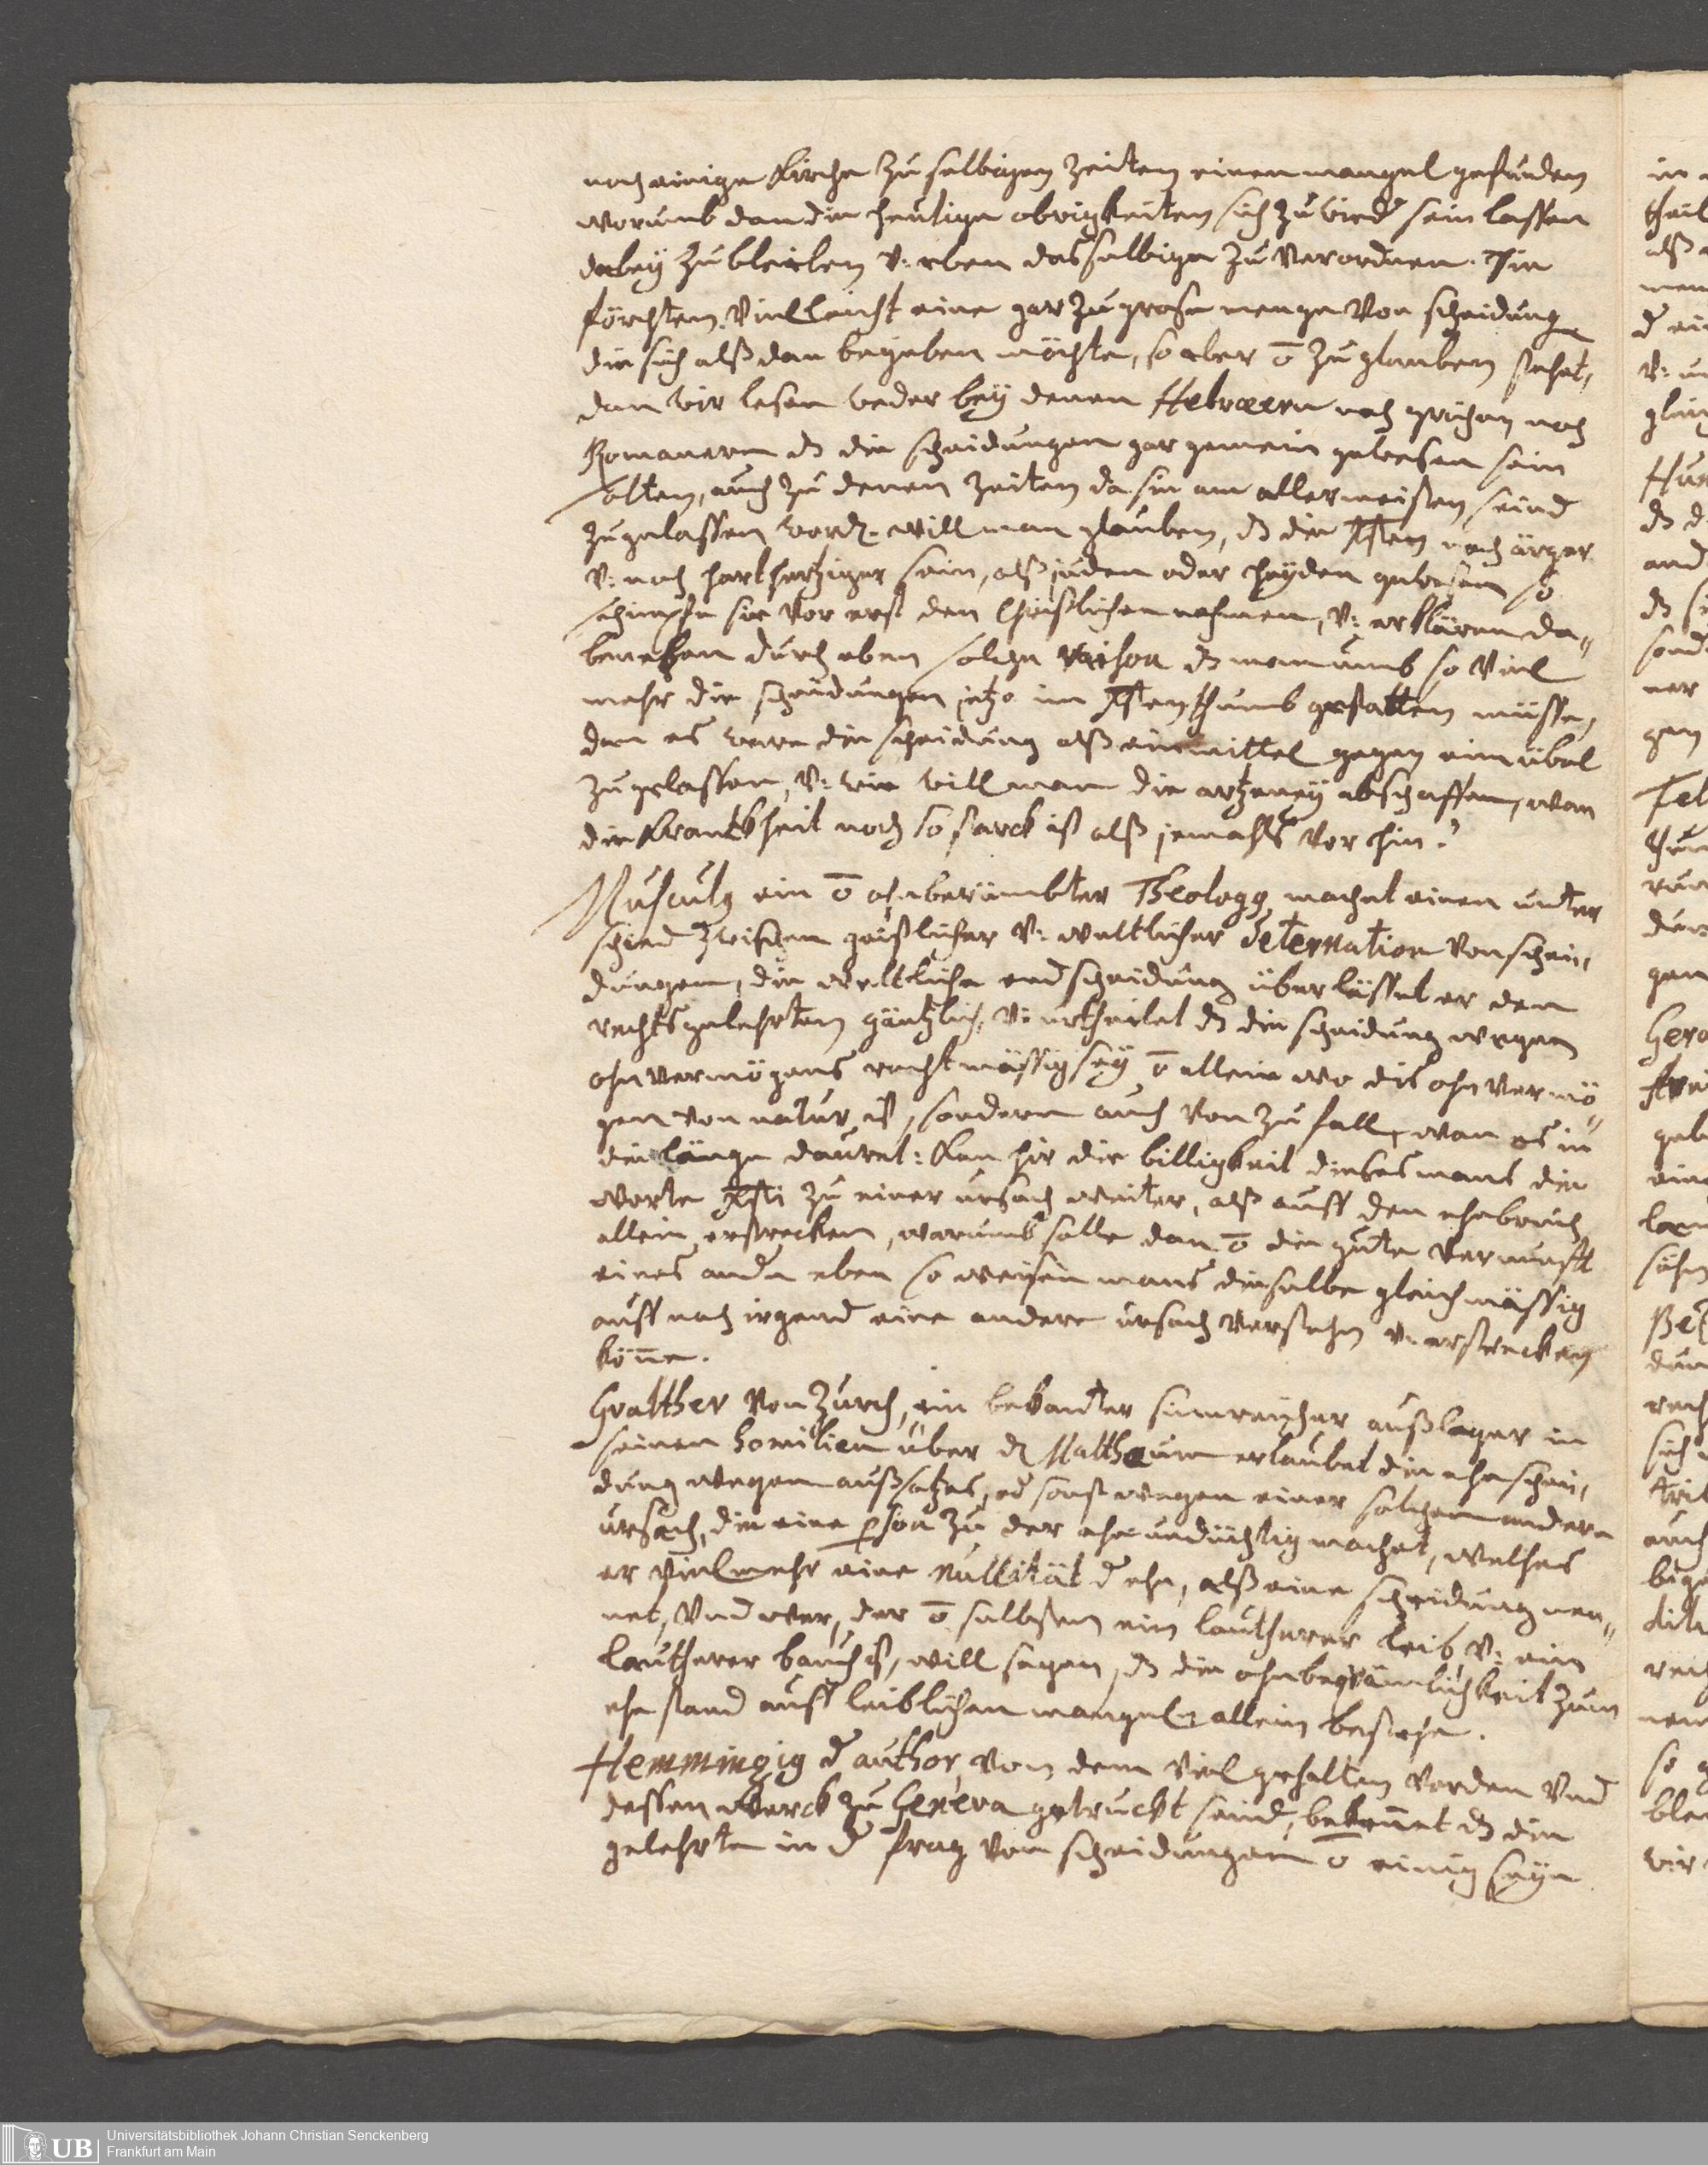 noch einige Kirche zu selbigen zeiten einen mangel gefunden
worumb dan die heutige obrigkeiten sich zuwied sein lassen
dabey zu bleiben v: eben dasselbige zu verordnen. Sie
förchten vielleicht eine gar zu grose menge von scheidung
die sich alß dan begeben möchte, so aber ō zu glauben stehet,
dan wir lesen weder bey denen Hebræern noch grichen noch
Romanern dz die scheidungen gar gemein gewesen sein
solten, auch zu denen zeiten da sie am allermeisten seind
zugelassen word. will man glauben, dz die Xsten noch ärger
v: noch harthertziger sein, alß juden oder heyden gewesen so
schimpfe sie vor erst den Christlichen nahmen, v: erklären da„
beneben durch eben solche raison dz man umb so viel
mehr die scheidungen jetzo im Xstenthumb gestatten müsse,
dan es were die scheidung alß ein mittel gegen ein übel
zugelassen, v: wie will man die artzeney abschaffen, wan
die Kranckheit noch so starck ist alß jemahls vor hin?
Musculus ein ō ohnberümbter Theologg machet einen unter
schied zwischen geistlicher v: weltlicher determation von schei„
dungen, die weltliche endscheidung überlässet er den
rechtsgelehrten gäntzlich, v: urtheilet dz die scheidung wegen
ohnvermögens rechtmässig sey ō allein wo dis ohnvermö„
gen von natur ist, sondern auch von zufall, wan es in
die länge dauret: Kan hir die billigkeit dieses mans die
worte Xsti zu einer ursach weiter, alß auff den ehebruch
allein erstrecken, warumb solle dan ō die gute vernunfft
eines andn eben so weisen mans dieselbe gleichmässig
auff noch irgend eine andere ursach verstehn v: erstrecken
kön̄e.
Gvalther von Zürch, ein bekanter sinnreicher außleger in
seinen homilien über dz Matthæum erlaubet die ehescheī„
dung wegen außsatzes, od sonst wegen einer solchen andern
ursach, die eine pson zu der ehe undüchtig machet, welches
er vielmehr eine nullität d ehe, alß eine scheidung nen„
net, Und wer, der ō selbsten ein lautherer Leib v: ein
lautherer bauch ist, will sagen, dz die ohnbequämlichkeit zum
ehestand auff leiblichen mangel allein bestehe.
Hemmingig d author, von dem viel gehalten worden Und
dessen werck zu Geneva getruckt seind, beken̄et dz die
gelehrten in d frag von scheidungen ō einig seyn
Universitätsbibliothek Johann Christian Senckenberg
Frankfurt am Main
UB